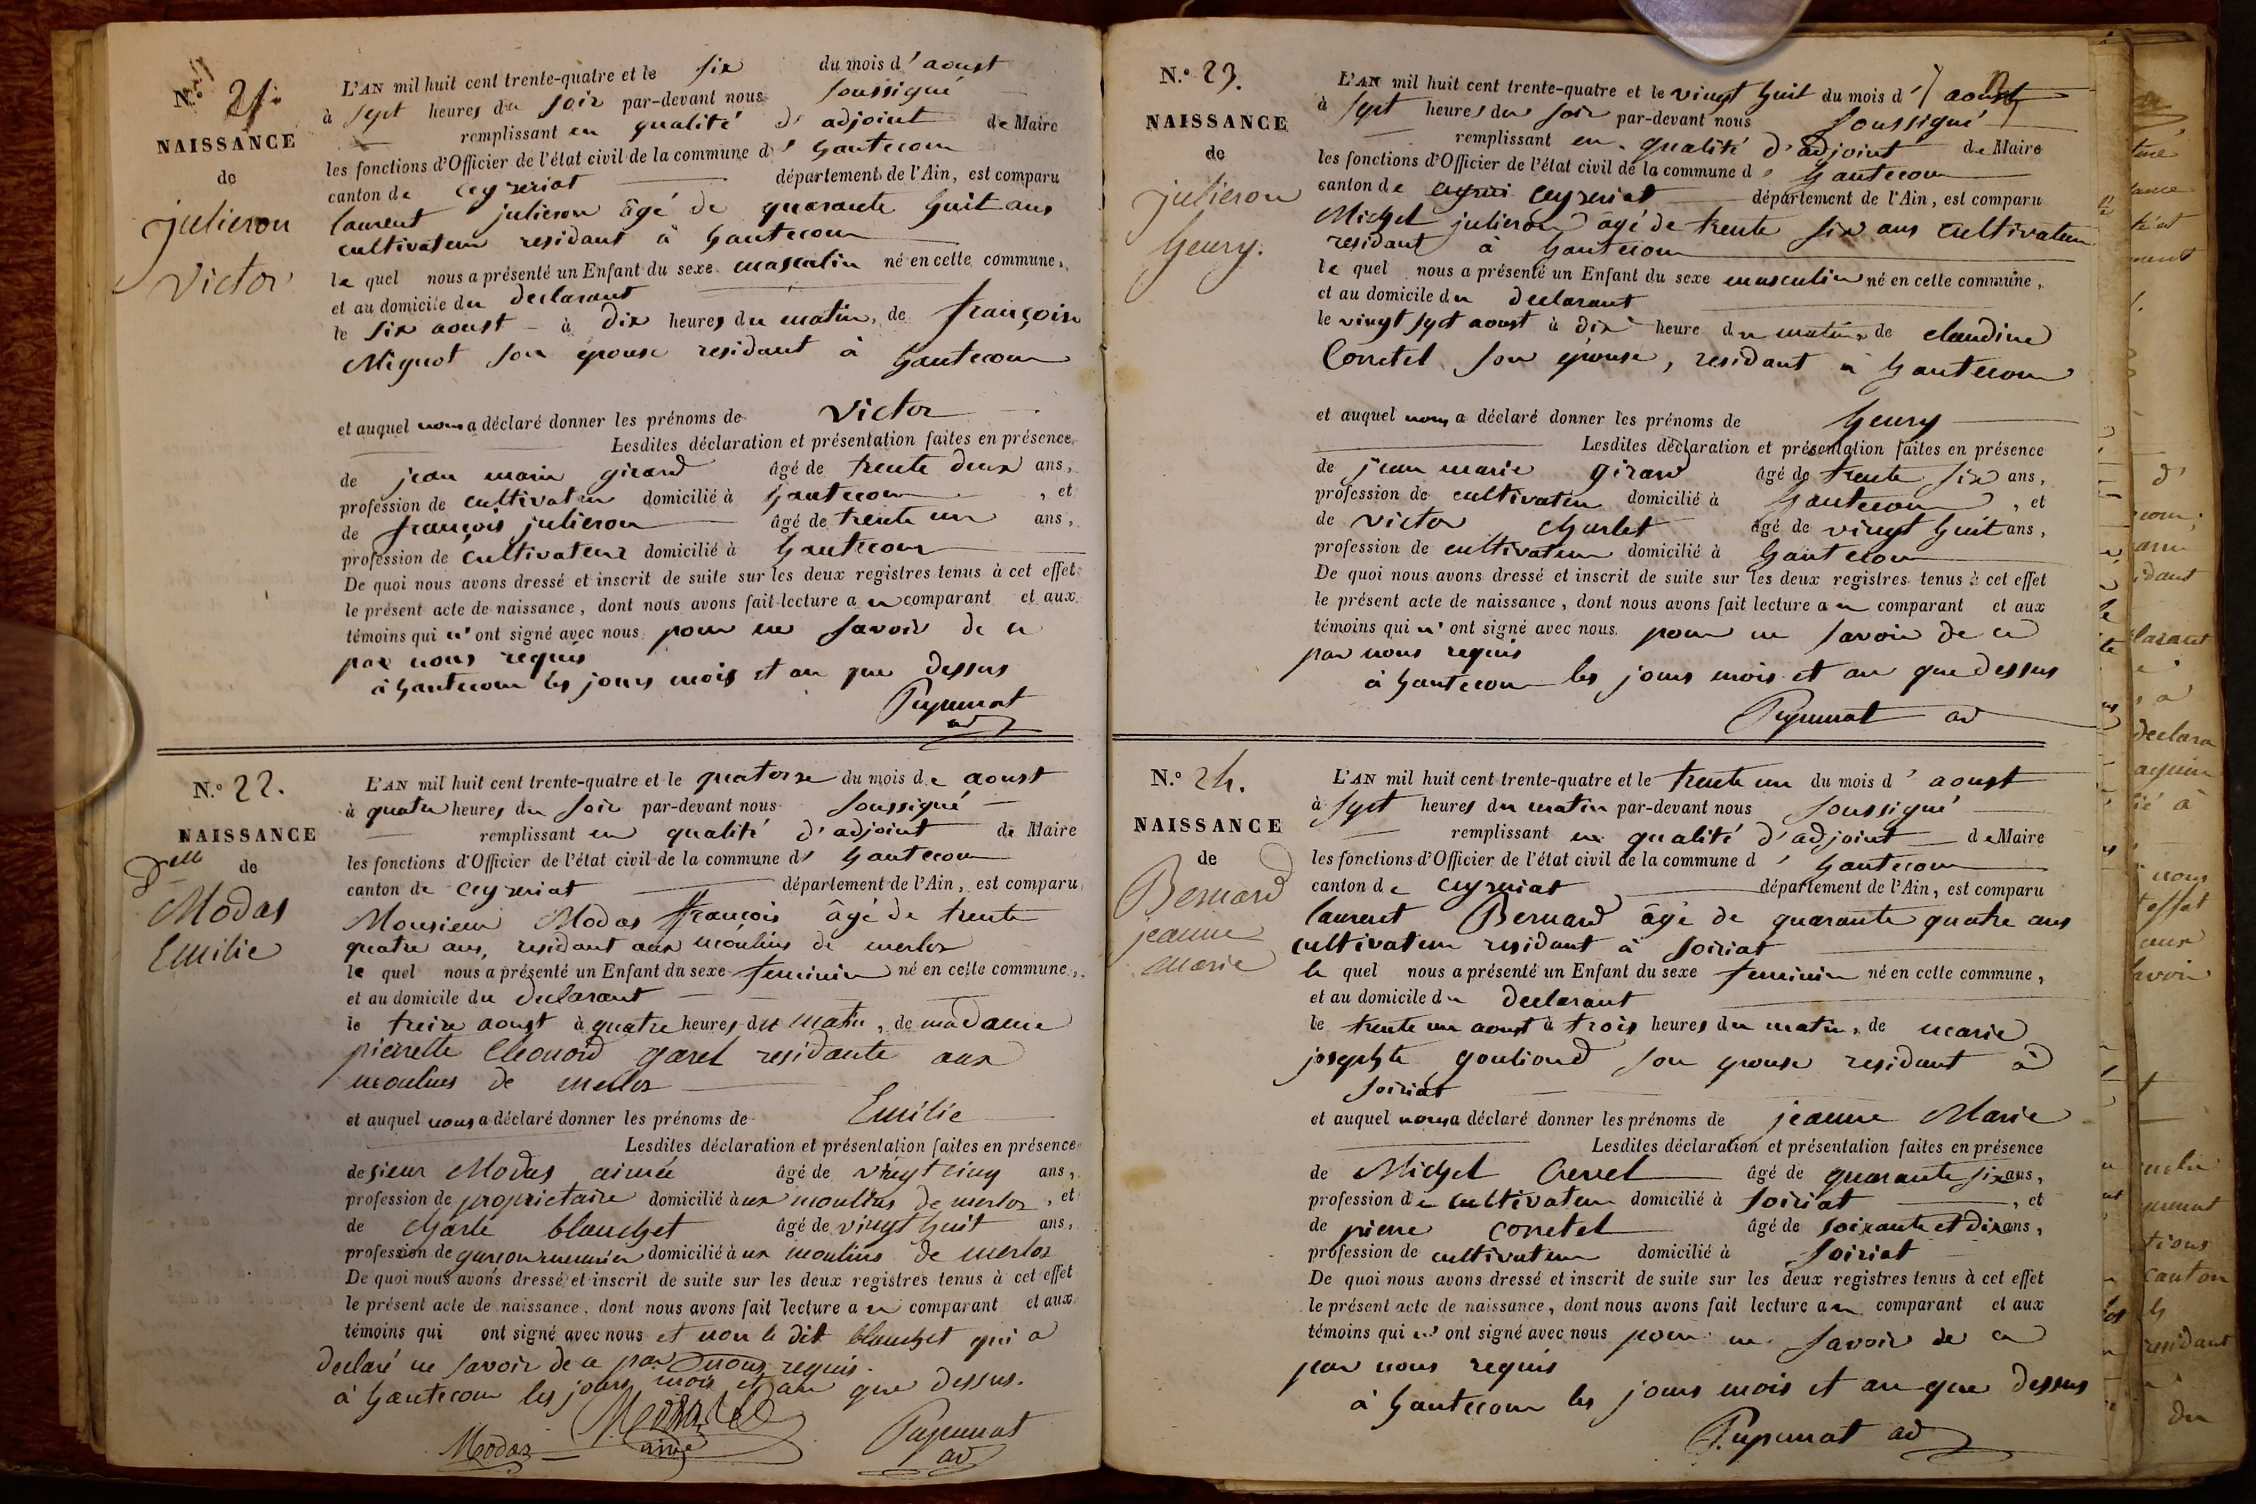 N.º 21.
NAISSANCE
de
julieron
Victor
L'AN mil huit cent trente-quatre et le six du mois d' aoust
à sept heures du soir par-devant nous soussigné
remplissant en qualité d' adjoint de Maire
les fonctions d'Officier de l'état civil de la commune d' hautecour
canton de ceyzeriat département de l'Ain, est comparu
laurent julieron âgé de quarante huit ans
cultivateur residant à hautecour
le quel nous a présenté un Enfant du sexe masculin né en cette commune,
et au domicile du declarant
le six aoust à dix heures du matin, de françoise
Mignot son epouse residant à hautecour
et auquel nous a déclaré donner les prénoms de Victor
Lesdites déclaration et présentation faites en présence
de jean marie girard âgé de trente deux ans,
profession de cultivateur domicilié à hautecour, et
de françois julieron âgé de trente un ans,
profession de cultivateur domicilié à hautecour
De quoi nous avons dressé et inscrit de suite sur les deux registres tenus à cet effet
le présent acte de naissance, dont nous avons fait lecture a u comparant et aux
témoins qui n' ont signé avec nous pour ne savoir de ce
par nous requis
à hautecour les jours mois et an que dessus
Pupunat
ad
N.º 22.
NAISSANCE
de
Dlle
Modas
Emilie
L'AN mil huit cent trente-quatre et le quatorze du mois de aoust
à quatre heures du soir par-devant nous soussigné
remplissant en qualité d'adjoint de Maire
les fonctions d'Officier de l'état civil de la commune d' hautecour
canton de ceyzeriat département de l'Ain, est comparu
Monsieur Modas françois âgé de trente
quatre ans, residant aux moulins de merloz
le quel nous a présenté un Enfant du sexe feminin né en cette commune,
et au domicile du declarant
le treize aoust à quatre heures du matin, de madame
pierrette garel residante aux
moulins de merloz
et auquel nous a déclaré donner les prénoms de Emilie
Lesdites déclaration et présentation faites en présence
de sieur Modas aimée âgé de vingt cinq ans,
profession de proprietaire domicilié à ux moulins de merloz, et
de Charle blanchet âgé de vingt huit ans,
profession de garçon meunier domicilié à ux moulins de merloz
De quoi nous avons dressé et inscrit de suite sur les deux registres tenus à cet effet
le présent acte de naissance, dont nous avons fait lecture a u comparant et aux
témoins qui ont signé avec nous et non le dit blanchet qui a
declaré ne savoir de ce par nous requis.
à hautecour les jours mois et an que dessus.
Modas
aimé
Pupunat
ad
N.º 23.
NAISSANCE
de
julieron
henry.
L'AN mil huit cent trente-quatre et le vingt huit du mois d' aoust
à sept heures du soir par-devant nous soussigné
remplissant en qualité d'adjoint de Maire
les fonctions d'Officier de l'état civil de la commune d' hautecour
canton de ceyzeriat département de l'Ain, est comparu
Michel julieron âgé de trente six ans cultivateur
residant à hautecour
le quel nous a présenté un Enfant du sexe masculin né en cette commune,
et au domicile du declarant
le vingt sept aoust à dix heure du matin de claudine
Corretel son epouse, residant à hautecour
et auquel nous a déclaré donner les prénoms de henry
Lesdites déclaration et présentation faites en présence
de jean marie girard âgé de trente six ans,
profession de cultivateur domicilié à hautecour, et
de victor Charlet âgé de vingt huit ans,
profession de cultivateur domicilié à hautecour
De quoi nous avons dressé et inscrit de suite sur les deux registres tenus à cet effet
le présent acte de naissance, dont nous avons fait lecture a u comparant et aux
témoins qui n' ont signé avec nous pour ne savoir de ce
par nous requis
à hautecour les jours mois et an que dessus
Pupunat ad
N.º 24.
NAISSANCE
de
Bernard
jeanne
marie
L'AN mil huit cent trente-quatre et le trente un du mois d' aoust
à sept heures du matin par-devant nous soussigné
remplissant en qualité d'adjoint de Maire
les fonctions d'Officier de l'état civil de la commune d' hautecour
canton de ceyzeriat département de l'Ain, est comparu
laurent Bernard âgé de quarante quatre ans
cultivateur residant à soiriat
le quel nous a présenté un Enfant du sexe feminin né en cette commune,
et au domicile du declarant
le trente un aoust à trois heures du matin, de marie
josephte gouliond son epouse residant à
soiriat
et auquel nous a déclaré donner les prénoms de jeanne Marie
Lesdites déclaration et présentation faites en présence
de Michel Crevel âgé de quarante six ans,
profession de cultivateur domicilié à soiriat, et
de pierre corretel âgé de soixante et dix ans,
profession de cultivateur domicilié à soiriat
De quoi nous avons dressé et inscrit de suite sur les deux registres tenus à cet effet
le présent acte de naissance, dont nous avons fait lecture a u comparant et aux
témoins qui n' ont signé avec nous pour ne savoir de ce
par nous requis
à hautecour les jours mois et an que dessus
Pupunat ad